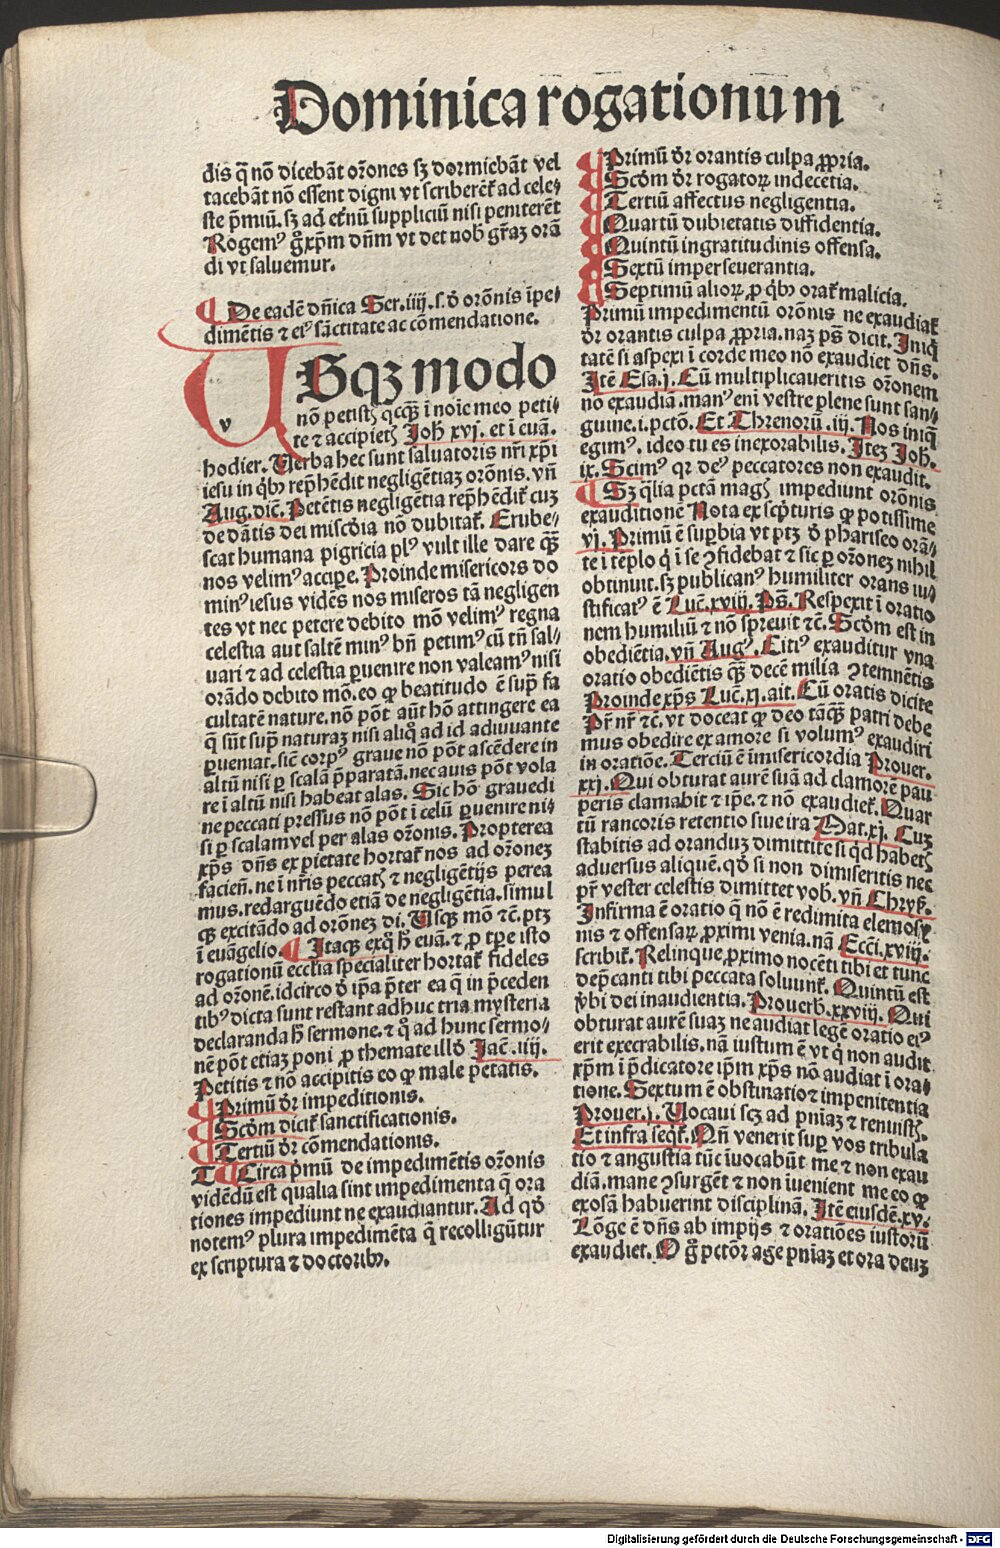 Dominica rogationum
dis q̄ nō dicebāt or̄ones sꝫ dormiebāt vel
tacebāt nō essent digni vt scriberēt᷑ ad cele⸗
ste p̄miū. sꝫ ad et̄nū suppliciū nisi peniterēt
Rogemꝰ gͦ xp̄m dn̄m vt det nob̄ gr̄aꝫ orā
di vt saluemur.
¶ De eadē dn̄ica Ser. iiij. s. d̓ or̄onis īpe⸗
dimētis ⁊ eiꝰ sāctitate ac cōmendatione.
VSqꝫ modo
v
nō petistꝭ qcq̄ꝫ ī noīe meo peti⸗
te ⁊ accipietꝭ Joh̄ xvj. et ī euā.
hodier. Uerba hec sunt saluatoris nr̄i xp̄i
iesu in qͥbꝰ rep̄hēdit negligētiaꝫ or̄onis. vn̄
Aug. dic̄. Petētis negligētia rep̄hēdit᷑ cuꝫ
de dātis dei mis̄cd̓ia nō dubitat᷑. Erube⸗
scat humana pigricia plꝰ vult ille dare q̄ꝫ
nos velimꝰ accipe. Proinde misericors do
minꝰ iesus vidēs nos miseros tā negligen
tes vt nec petere debito mō velimꝰ regna
celestia aut saltē minꝰ bn̄ petimꝰ cū tn̄ sal⸗
uari ⁊ ad celestia ꝑuenire non valeamꝰ nisi
orādo debito mō. eo ꝙ beatitudo ē sup̄ fa
cultatē nature. nō pōt aūt hō attingere ea
q̄ sūt sup̄ naturaꝫ nisi aliqͦ ad id adiuuante
ꝑueniat. sic̄ corpꝰ graue nō pōt ascēdere in
altū nisi ꝑ scalā p̄paratā. nec auis pōt vola
re ī altū nisi habeat alas. Sic hō grauedi
ne peccati pressus nō pōt ī celū ꝑuenire ni⸗
si ꝑ scalam vel per alas or̄onis. Propterea
xp̄s dn̄s ex pietate hortat᷑ nos ad or̄oneꝫ
facien̄. ne ī nr̄is peccatꝭ ⁊ negligētijs perea
mus. redarguēdo etiā de negligētia. simul
qꝫ excitādo ad or̄oneꝫ di. Usqꝫ mō ⁊c̄. ptꝫ
ī euāgelio. ¶ Itaqꝫ exqͦ h̄ euā. ⁊ ꝓ tp̄e isto
rogationū ecclīa specialiter hortat᷑ fideles
ad or̄onē. idcirco d̓ ip̄a p̄ter ea q̄ in p̄ceden
tibꝰ dicta sunt restant adhuc tria mysteria
declaranda h̄ sermone. ⁊ qͣ ad hunc sermo⸗
nē pōt etiaꝫ poni ꝓ themate illd̓ Jac̄. iiij.
Petitis ⁊ nō accipitis eo ꝙ male petatis.
¶ Primū dr̄ impeditionis.
¶ Scd̓m dicit᷑ sanctificationis.
¶ Tertiū dr̄ cōmendationis.
T ¶ Circa pͥmū de impedimētis or̄onis
vidēdū est qualia sint impedimenta q̄ ora
tiones impediunt ne exaudiantur. Ad qd̓
notemꝰ plura impedimēta q̄ recolligūtur
ex scriptura ⁊ doctoribꝰ.
¶ Primū dr̄ orantis culpa ꝓpria.
¶ Scd̓m dr̄ rogatoꝝ indecētia.
¶ Tertiū affectus negligentia.
¶ Quartū dubietatis diffidentia.
¶ Quintū ingratitudinis offensa.
¶ Sextū imperseuerantia.
¶ Septimū alioꝝ, ꝓ qͥbꝰ orat᷑ malicia.
Primū impedimentū or̄onis ne exaudiat᷑
dr̄ orantis culpa ꝓpria. naꝫ ps̄ dicit. Iniqͥ
tatē si aspexi ī corde meo nō exaudiet dn̄s.
Itē Esa. j. Cū multiplicaueritis or̄onem
nō exaudiā. manꝰ eni vestre plene sunt san⸗
guine. i. pctō. Et Threnoꝝ. iij. Nos iniq̄
egimꝰ. ideo tu es inexorabilis. Iteꝫ Joh̄.
ix. Scimꝰ qr deꝰ peccatores non exaudit.
¶ Sꝫ q̄lia pctā magꝭ impediunt or̄onis
exauditionē Nota ex sc̄pturis ꝙ potissime
vj. Primū ē suꝑbia vt ptꝫ d̓ phariseo orā⸗
te ī tēplo qͥ ī se ꝯfidebat ⁊ sic ꝑ or̄oneꝫ nihil
obtinuit. sꝫ publicanꝰ humiliter orans iu⸗
stificatꝰ ē Luc̄. xviij. Ps̄. Respexit ī oratio
nem humiliū ⁊ nō spreuit ⁊c̄. Scd̓m est in
obediētia. vn̄ Augꝰ. Citiꝰ exauditur vna
oratio obediētis q̄ꝫ decē milia ꝯtemnētis
Proinde xp̄s Luc̄. xj. ait. Cū oratis dicite
Pr̄ nr̄ ⁊c̄. vt doceat ꝙ deo tāq̄ꝫ patri debe
mus obedire ex amore si volumꝰ exaudiri
in oratiōe. Terciū ē īmisericordia Prouer.
xxj. Qui obturat aurē suā ad clamorē pau
peris clamabit ⁊ ip̄e. ⁊ nō exaudiet᷑. Quar
tū rancoris retentio siue ira Mat. xj. Cuꝫ
stabitis ad oranduꝫ dimittite si qͥd habetꝭ
aduersus aliquē. qd̓ si non dimiseritis nec
pr̄ vester celestis dimittet vob. vn̄ Chrys̄.
Infirma ē oratio q̄ nō ē redimita elemosy
nis ⁊ offensaꝝ ꝓximi venia. nā Ecci. xviij.
scribit᷑. Relinque ꝓximo nocēti tibi et tunc
dep̄canti tibi peccata soluunt᷑. Quintū est
v̓bi dei inaudientia. Prouerb. xxviij. Qui
obturat aurē suaꝫ ne audiat legē oratio eiꝰ
erit execrabilis. nā iustum ē vt qͥ non audit
xp̄m ī p̄dicatore ip̄m xp̄s nō audiat ī ora⸗
tione. Sextum ē obstinatio ⁊ impenitentia
Prouer. j. Uocaui scꝫ ad pn̄iaꝫ ⁊ renuistꝭ.
Et infra seqt᷑. Qn̄ venerit suꝑ vos tribula
tio ⁊ angustia tūc īuocabūt me ⁊ non exau
diā. mane ꝯsurgēt ⁊ non īuenient me eo ꝙ
exosā habuerint disciplinā. Itē eiusdē. xv.
Lōge ē dn̄s ab impijs ⁊ oratiōes iustoꝝ
exaudiet. O gͦ pctōr age pn̄iaꝫ et ora deuꝫ
Digitalisierung gefördert durch die Deutsche Forschungsgemeinschaft - DFG